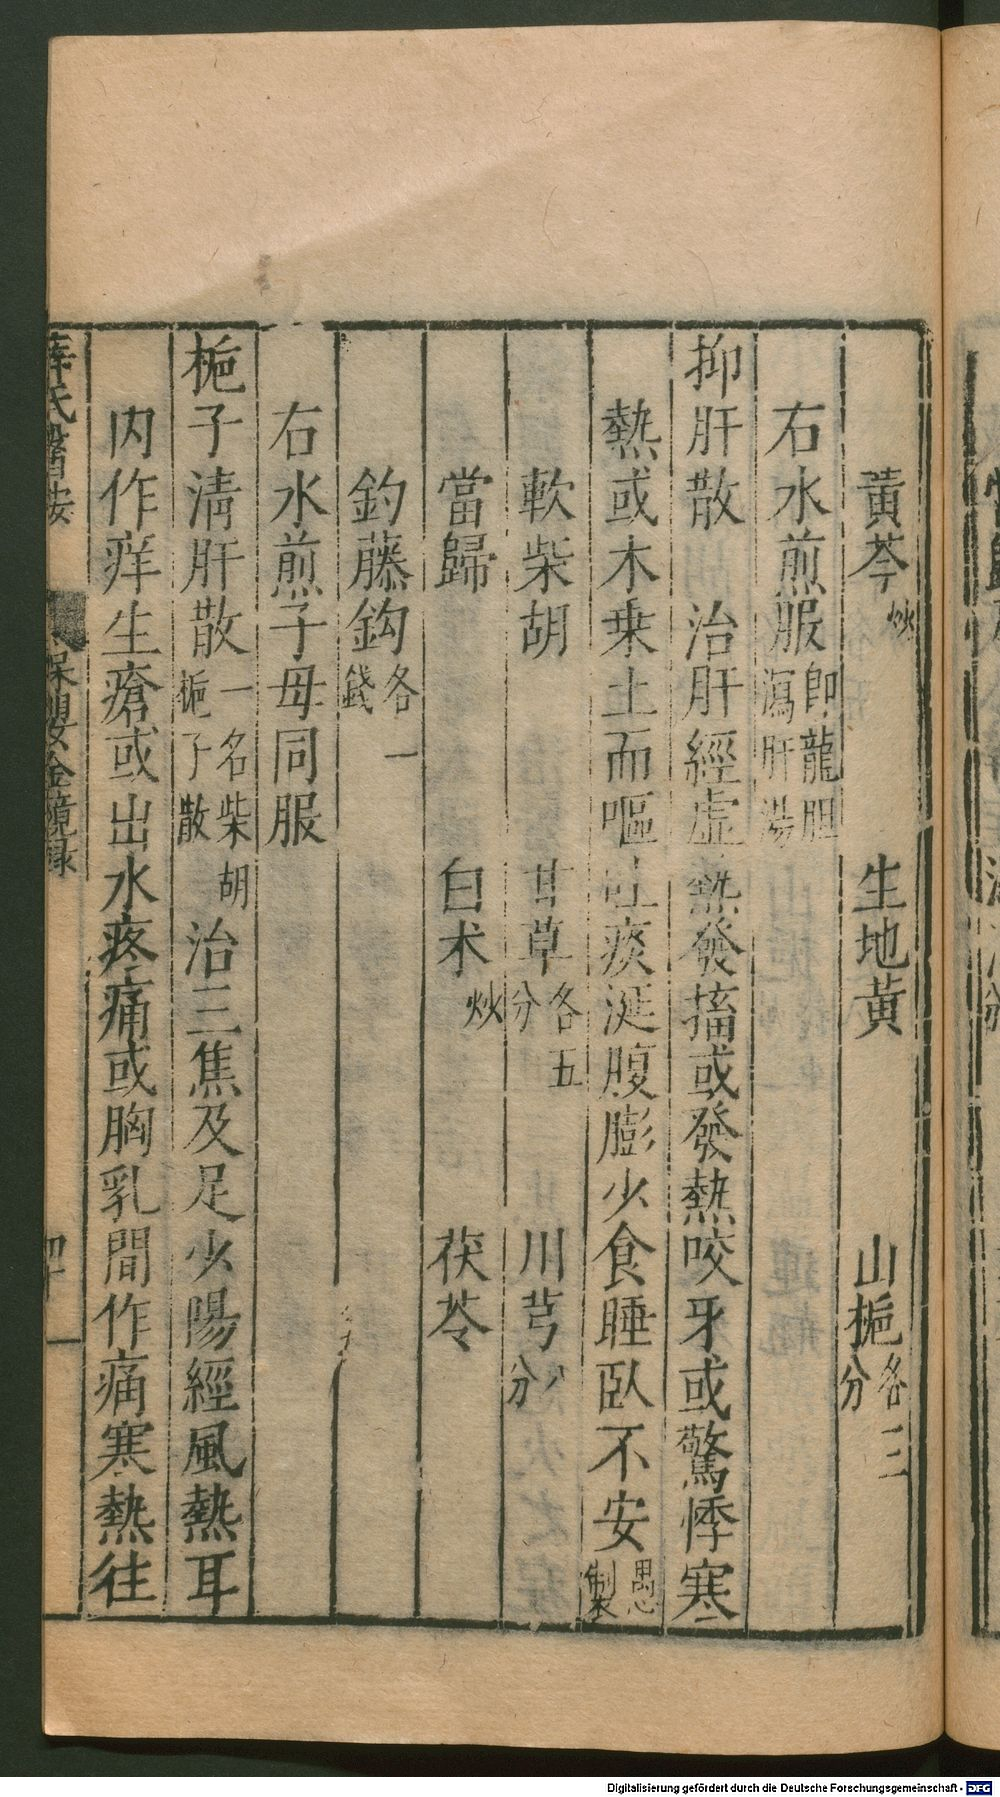 黄芩炒　生地黄　山梔各三分
右水煎服即龍胆瀉肝湯
抑肝散　治肝經虛熱發搐或發熱咬牙或驚悸寒
熱或木乗土而嘔吐痰涎腹膨少食睡臥不安愚製
軟柴胡　甘草各五分　川芎八分
當歸　白术炒　茯苓
釣藤鈎各一錢
右水煎子母同服
梔子清肝散一名柴胡梔子散治三焦及足少陽經風熱耳
内作痒生瘡或出水疼痛或胸乳間作痛寒熱徃
薛氏醫按　保嬰金鏡録　四十
Digitalisierung gefördert durch die Deutsche Forschungsgemeinschaft - DFG